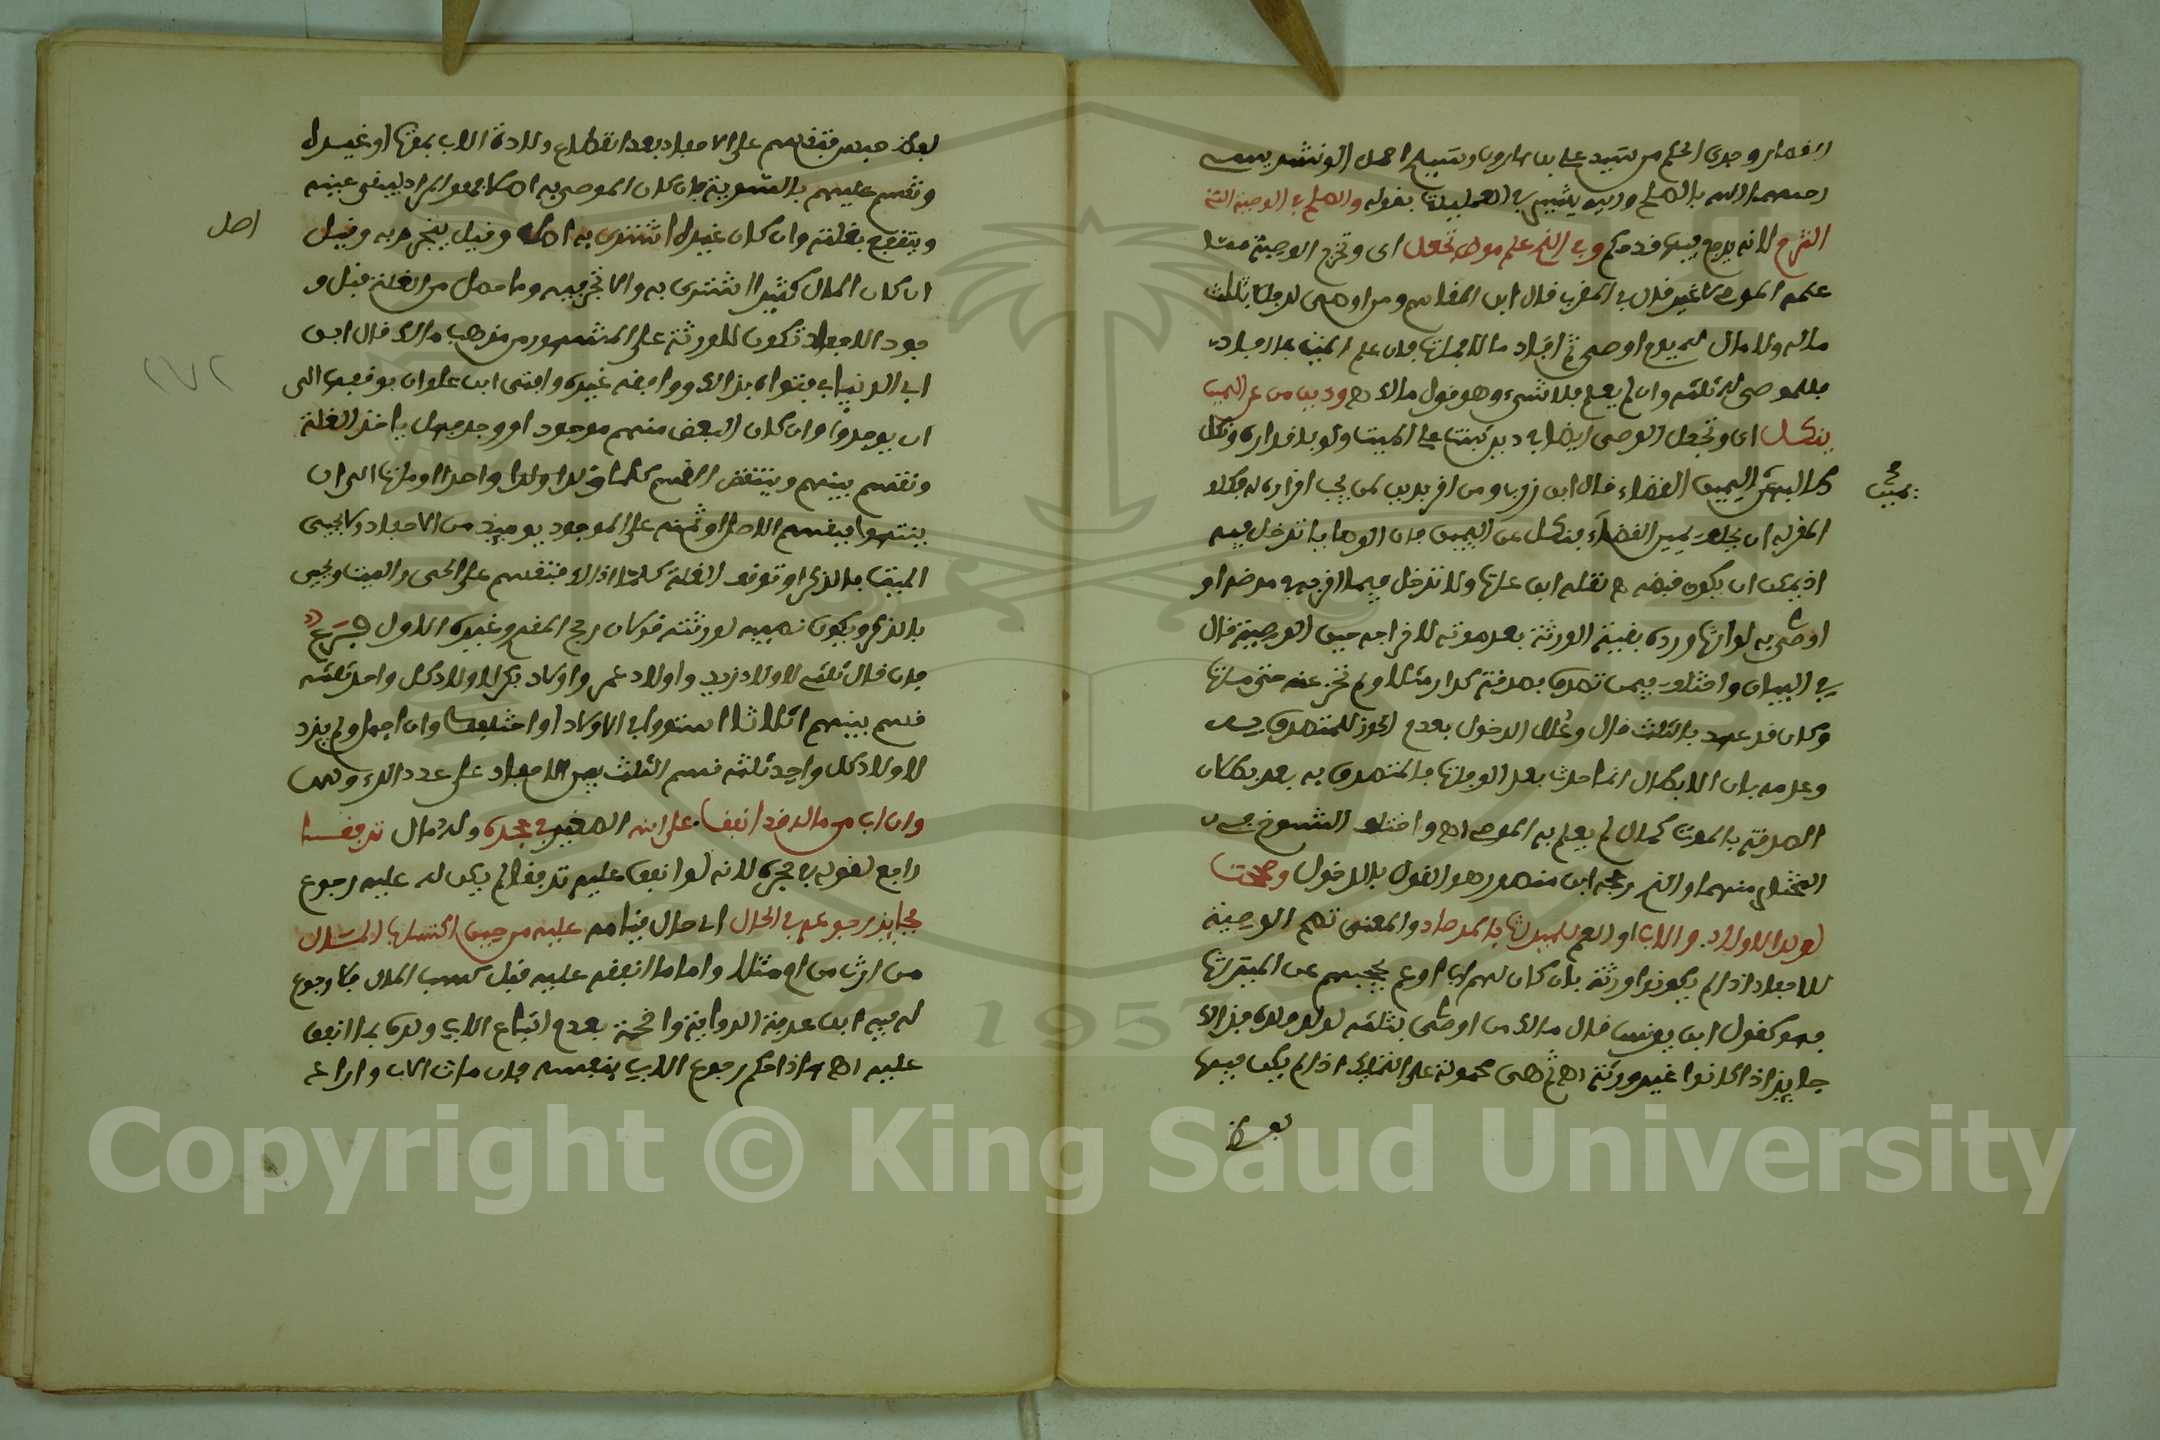 القضاء وجرى الحكم من سيد علي بن هارون وسيد احمد الونشريسي
رحمهما الله بالصلح واليه يشير في العمليات بقوله والصلح في الوصية التي
التزم لانه يرجع فيها قد حكم وفي التي علم موص تجعل اى وتخرج الوصية مما
علمه الموصي لا غير قال في المقرب قال ابن القاسم ومن اوصى لرجل بثلث
ماله ولا مال له يوم اوصى ثم افاد مالا فمات فان علم الميت بما افاد
فللموصى له ثلثه وان لم يعلم فلا شيء وهو قول مالك اه ودين من عن اليمين
ينكل اى وتجعل الوصى ايضا في دين يثبت على الميت ولو باقراره ونكل
طالبه عن اليمين القضاء قال ابن زرب ومن اقر بدين لمن يجب اقراره له فكلا
يمين صح
المقر له ان يحلف يمين القضاء فنكل عن اليمين فان الوصايا تدخل فيه
اذ يمكن ان يكون قبضه ه نقله ابن علوان ولا تدخل فيما اقر به في مرضه او
اوصى به لوارث ورده بقية الورثة بعد موته لاخراجه حين الوصية قال
في البيان واختلف فيمن تصدق بصدقة كدار مثلا ولم تخرج عنه حتى مات
وكان قد عهد بالثلث قال وعلل الدخول بعدم الحوز للمتصدق
وعدمه بان الابطال انما حدث بعد الوفاة فالمتصدق به بعد بطلان
الصدقة بالموت كمال لم يعلم به الموصي اه واختلف الشيوخ
المحتمل منهما والذي رجحه ابن منصور هو القول بالدخول وصحت
لولد الاولاد والاب او العم للميراث بالمرصاد والمعنى تصح الوصية
للاحفاد اذا لم يكونوا ورثة بان كان لهم اب او عم يحجبهم عن الميراث
فهو كقول ابن يونس قال مالك من اوصى بثلثه لولد ولده فذلك
جايز اذا كانوا غير ورثة اه ثم هي محمولة على التمليك اذا لم يكن فيها
لفظ
لفظ حبس فتقسم على الاحفاد بعد انقطاع ولادة الاب بموته او غيره
وتقسم عليهم بالسوية فان كان الموصى به اصلا فهو المراد ليبقى عينه
وينتفع بغلته وان كان غيره اشترى به اصل وقيل يتجر به وقيل
اصل
ان كان المال كثيرا اشترى به والا تجر فيه وما حصل من الغلة قبل و
جود الاحفاد تكون للورثة على المشهور من مذهب مالك قال ابن
ابى الدنيا في فتواه بذلك ووافقه غيره وافتى ابن علوان بوقفها الى
٢٧٢
ان يوجدوا وان كان البعض منهم موجود او وجد فهل ياخذ الغلة
وتقسم بينهم وينتقض القسم كلما ولد ولدا واحدا او مات الى ان
ينتهوا فيقسم الاصل او ثمنه على الموجود يوميذ من الاحفاد ولا يحيى
الميت بالذكر او توقف الغلة كلها اذ ذاك فتقسم على الحى والميت ويحيى
بالذكر ويكون نصيبه لورثته قولان رجح المقدم وغيره الاول فرع
فان قال ثلثى لاولاد زيد واولاد عمر واولاد بكر لاولاد كل واحد ثلثه
قسم بينهم اثلاثا استووا في الاولاد او اختلفوا وان اجمل ولم يزد
لاولاد كل واحد ثلثه قسم الثلث بين الاحفاد على عدد الرءوس
وان اب من ماله قد انفقا على ابنه الصغير في حجره وله مال ترفقا
راجع لقوله في حجره لانه لو انفق عليه ترفقا لم يكن له عليه رجوع
فجايز رجوعه في الحال اى حال قيامه عليه من حين اكتسابه المال
من ارث من امه مثلا واما ما انفقه عليه قبل كسب المال فلا رجوع
له فيه ابن عرفة الرواية واضحة بعدم اتباع الاب ولده بما انفق
عليه اه هذا حكم رجوع الاب بنفسه فان مات الاب واراد